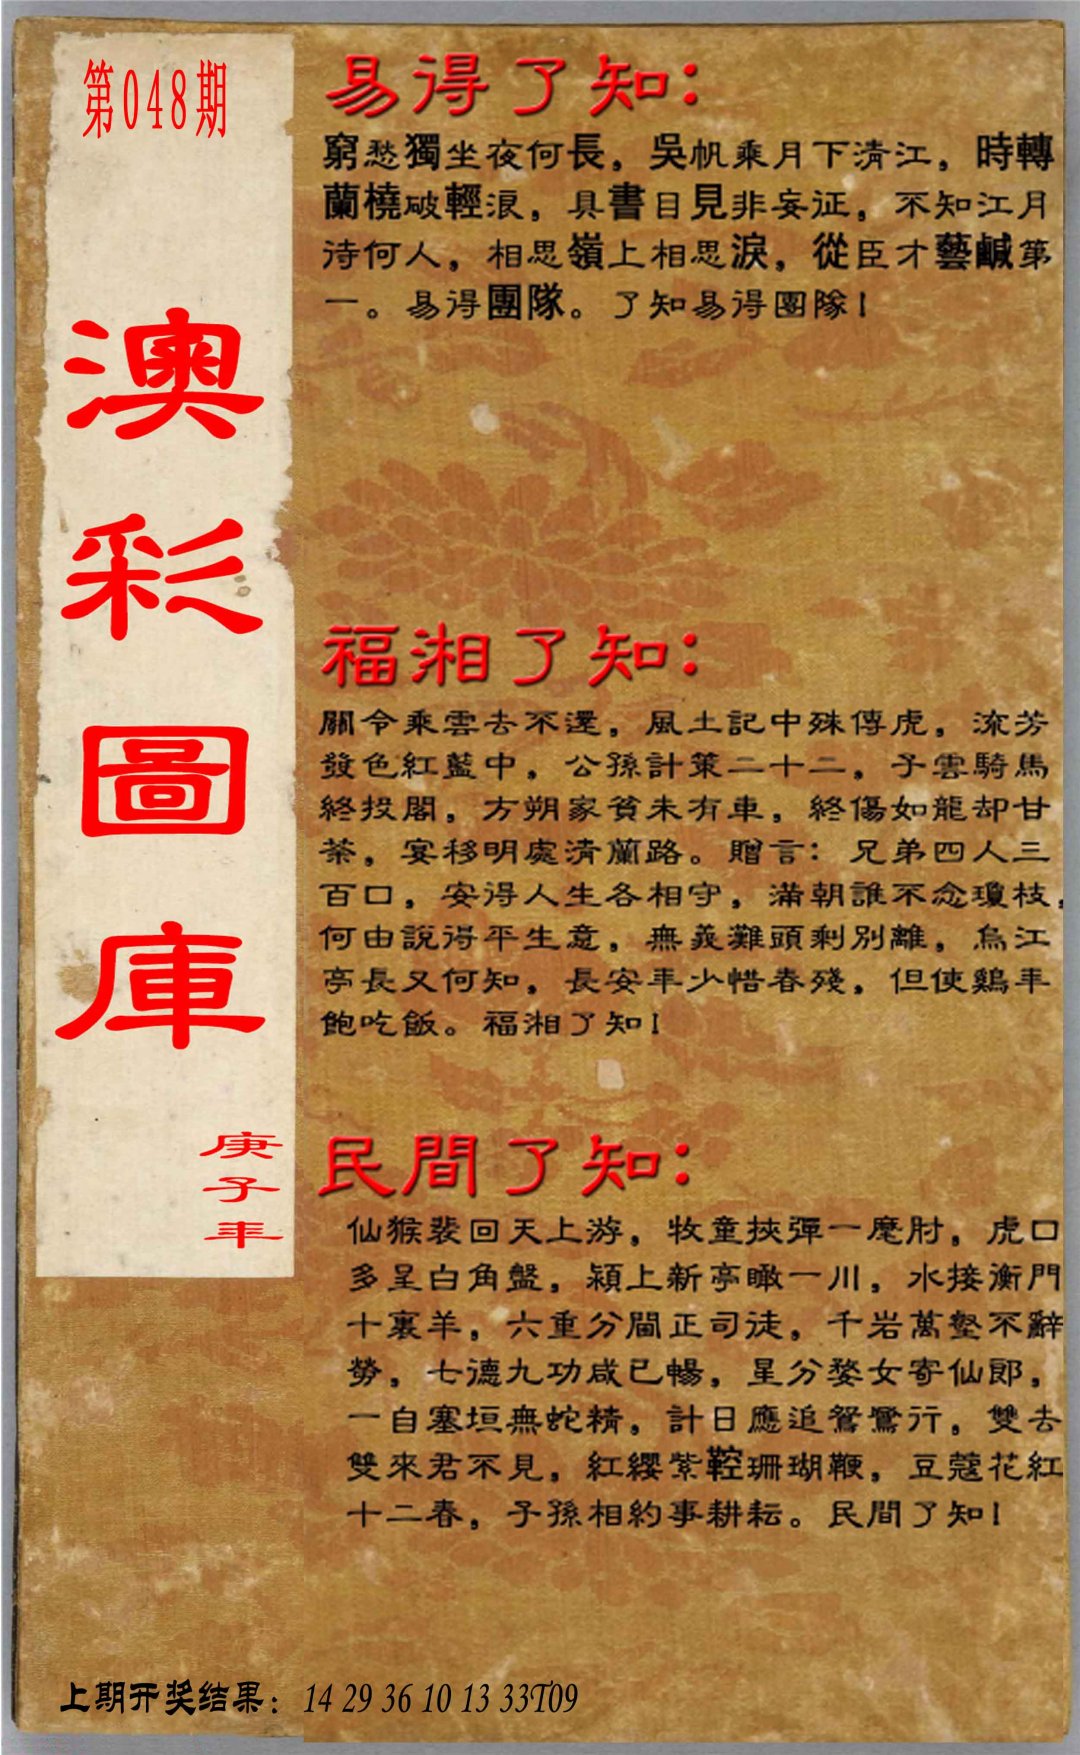 第048期
澳彩圖庫
庚子年
易得了知：
窮愁獨坐夜何長，吳帆乘月下清江，時轉
蘭橈破輕浪，具書目見非妄证，不知江月
待何人，相思嶺上相思淚，從臣才藝鹹第
一。易得團隊。了知易得團隊！
福湘了知：
關令乘雲去不還，風土記中殊傳虎，流芳
發色紅藍中，公孫計策二十二，子雲騎馬
終投閣，方朔家貧未有車，終傷如龍却甘
荼，宴移明處清蘭路。贈言：兄弟四人三
百口，安得人生各相守，滿朝誰不念瓊枝，
何由說得平生意，無義灘頭剩別離，烏江
亭長又何知，長安年少惜春殘，但使鷄年
飽吃飯。福湘了知！
民間了知：
仙猴裴回天上游，牧童挾彈一麾肘，虎口
多呈白角盤，潁上新亭瞰一川，水接衡門
十裏羊，六重分閫正司徒，千岩萬壑不辭
勞，七德九功咸已暢，星分婺女寄仙郎，
一自塞垣無蛇精，計日應追鴛鷺行，雙去
雙來君不見，紅纓紫鞚珊瑚鞭，豆蔻花紅
十二春，子孫相約事耕耘。民間了知！
上期开奖结果：14 29 36 10 13 33T09